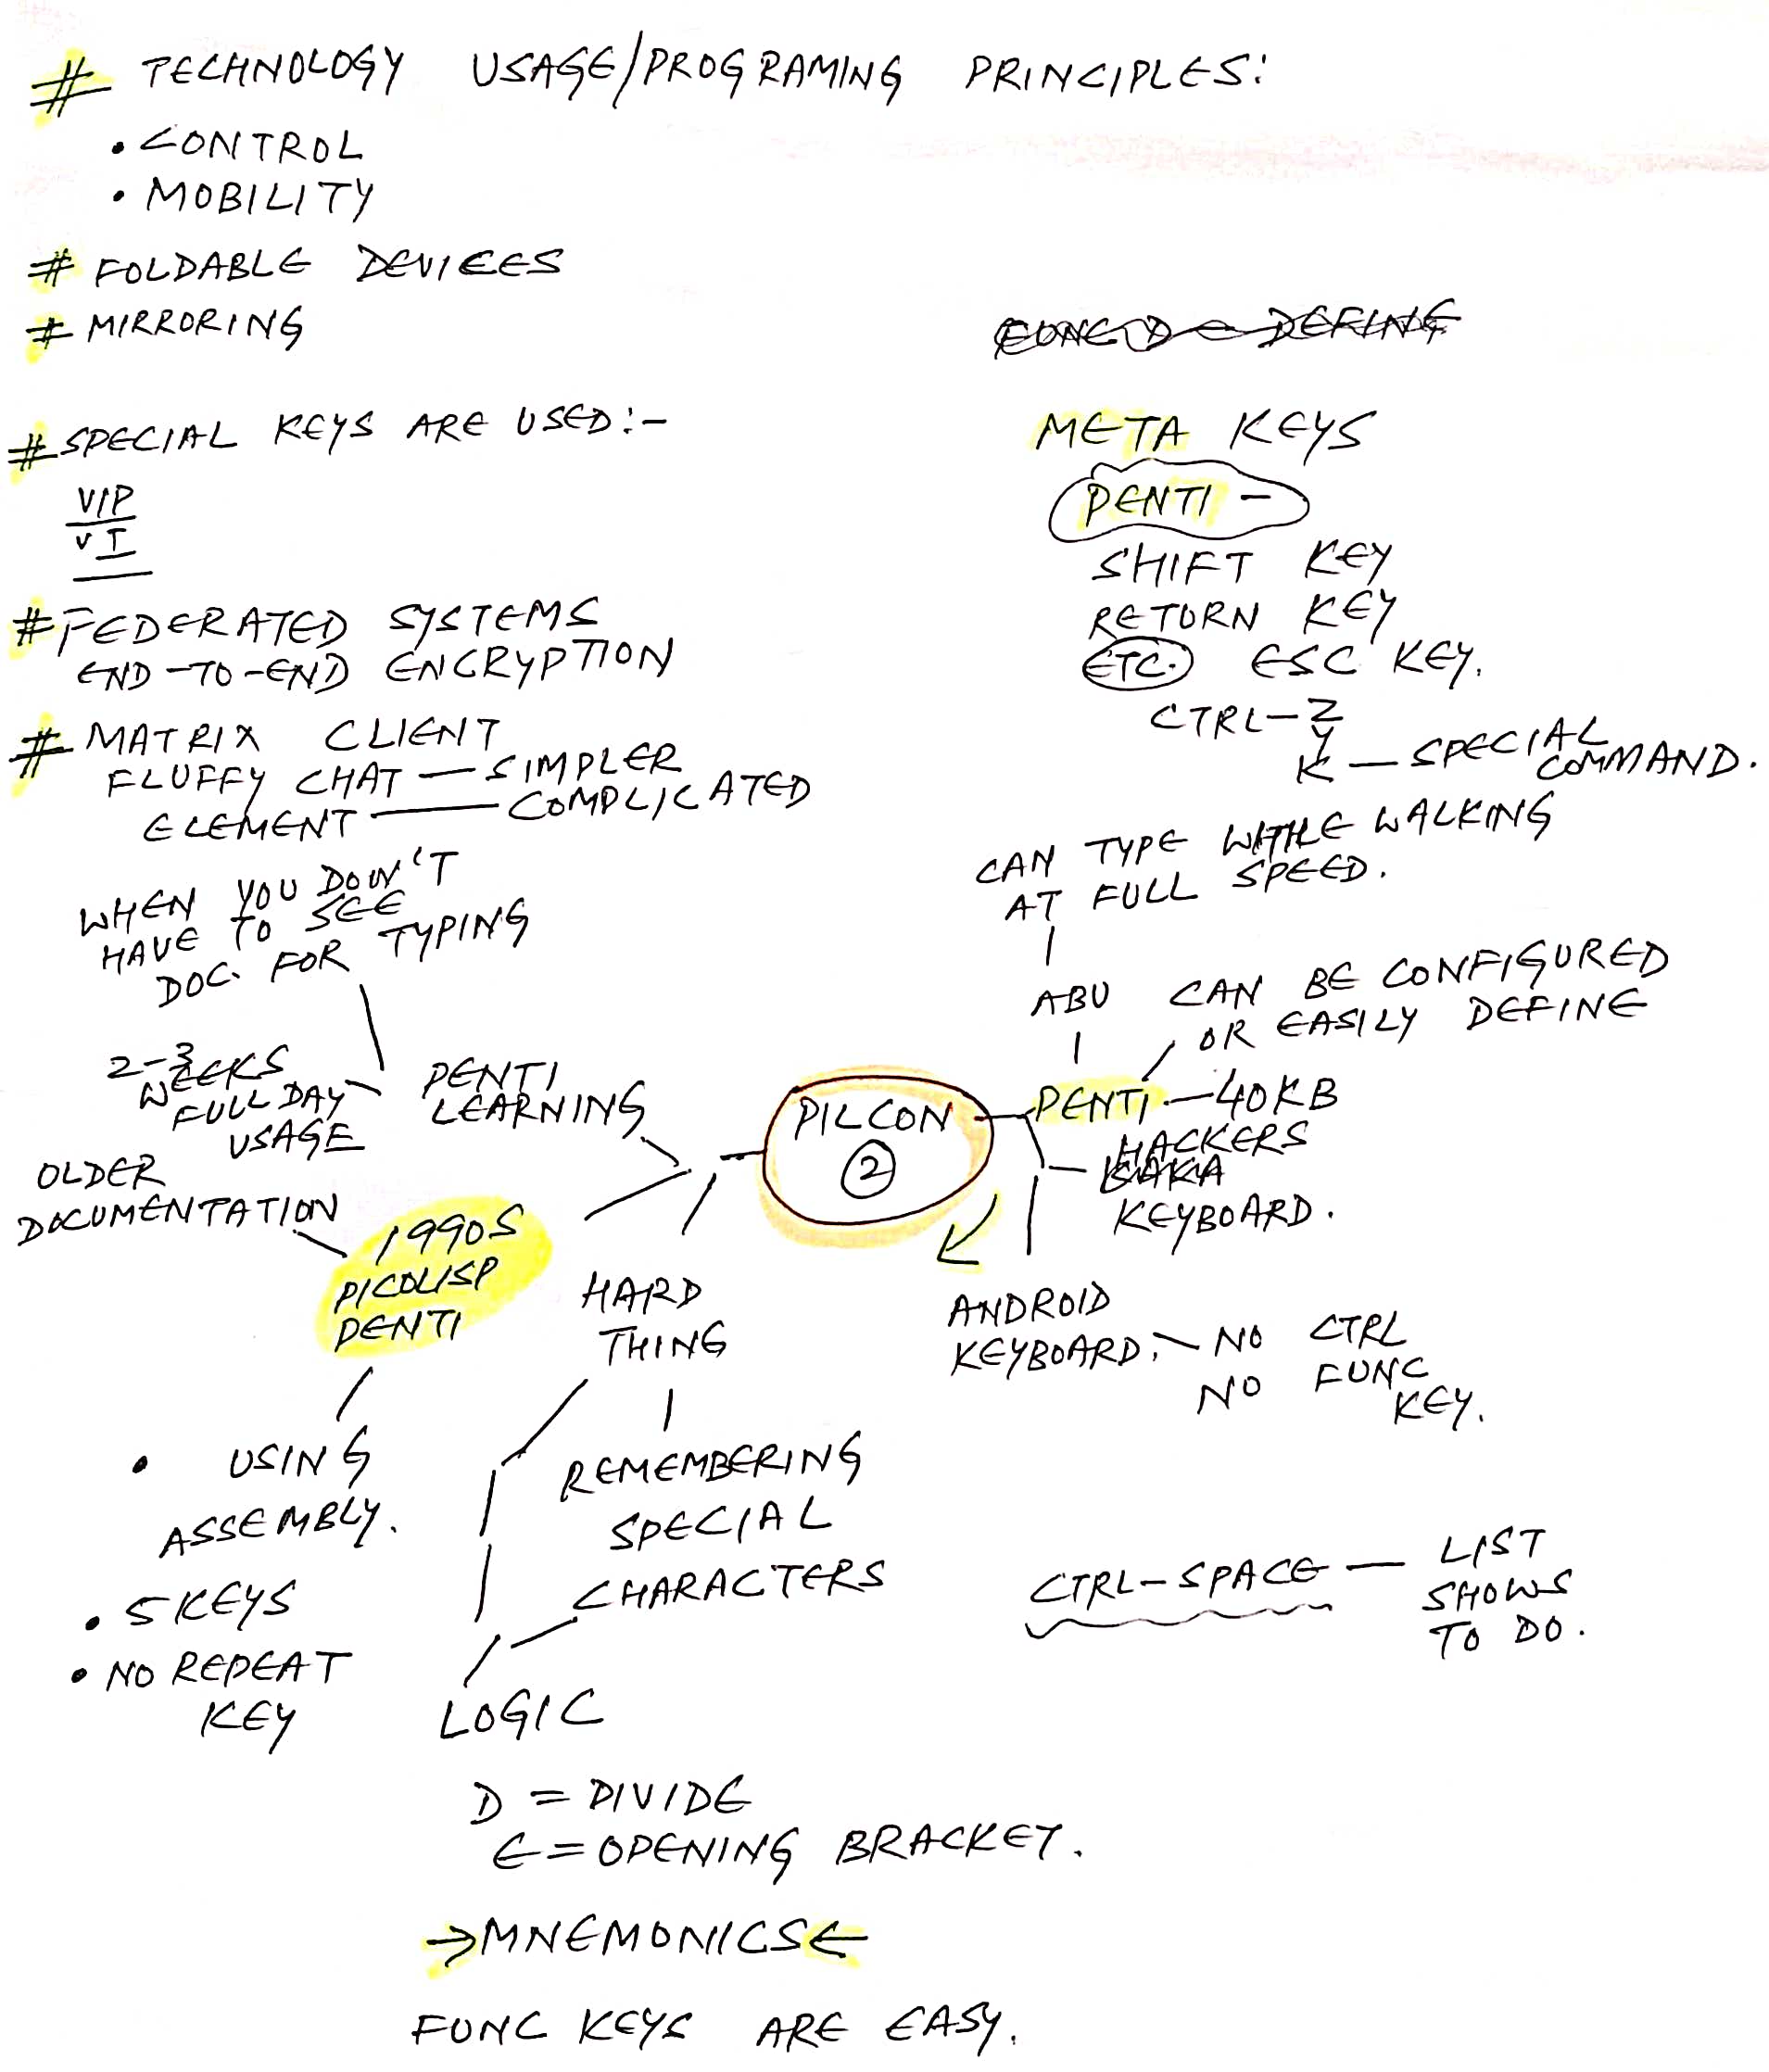 # TECHNOLOGY USAGE/PROGRAMING PRINCIPLES:
• CONTROL
• MOBILITY
# FOLDABLE DEVICES
# MIRRORING
# SPECIAL KEYS ARE USED:-
VIP
VI
# FEDERATED SYSTEMS
END-TO-END ENCRYPTION
# MATRIX CLIENT
FLUFFY CHAT — SIMPLER
ELEMENT — COMPLICATED
WHEN YOU DON'T
HAVE TO SEE
DOC. FOR TYPING
2-3
WEEKS
FULL DAY
USAGE
PENTI
LEARNING
OLDER
DOCUMENTATION
1990S
PICOLISP
PENTI
• USING
ASSEMBLY.
• 5 KEYS
• NO REPEAT
KEY
HARD
THING
REMEMBERING
SPECIAL
CHARACTERS
LOGIC
D = DIVIDE
E = OPENING BRACKET.
→MNEMONICS←
FUNC KEYS ARE EASY.
PILCON
2
FUNC D — DEFINE
META KEYS
PENTI -
SHIFT KEY
RETURN KEY
ETC. ESC KEY.
CTRL-Z
Y
K — SPECIAL
COMMAND.
CAN TYPE WHILE WALKING
AT FULL SPEED.
ABU
CAN BE CONFIGURED
OR EASILY DEFINE
PENTI — 40KB
HACKERS
KEYBOARD.
ANDROID
KEYBOARD. — NO CTRL
NO FUNC
KEY.
CTRL-SPACE — LIST
SHOWS
TO DO.